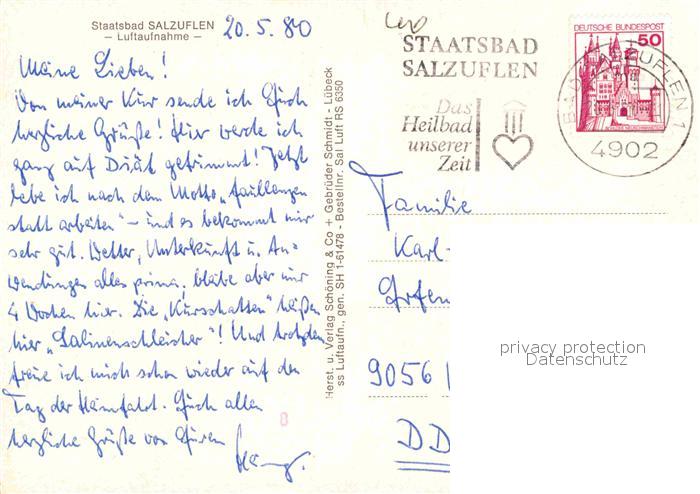 Staatsbad SALZUFLEN
– Luftaufnahme –
20.5.80
Meine Lieben!
Von meiner Kur sende ich Euch
herzliche Grüße! Hier werde ich
ganz auf Diät getrimmt! Jetzt
lebe ich nach dem Motto „faullenzen
statt arbeiten" – und es bekommt mir
sehr gut. Wetter, Unterkunft u. An-
wendungen alles prima, bleibe aber nur
4 Wochen hier. Die „Kurschatten" heißen
hier „Salinenschleicher"! Und trotzdem
freue ich mich schon wieder auf den
Tag der Heimfahrt. Euch allen
herzliche Grüße von Eurem
8
Herst. u. Verlag Schöning & Co + Gebrüder Schmidt - Lübeck
ss Luftaufn., gen. SH 1-61478 - Bestellnr. Sal Luft RS 6350
STAATSBAD
SALZUFLEN
Das
Heilbad
unserer
Zeit
DEUTSCHE BUNDESPOST
50
BAD SALZUFLEN 1
4902
Familie
Karl-
9056
DD
privacy protection
Datenschutz